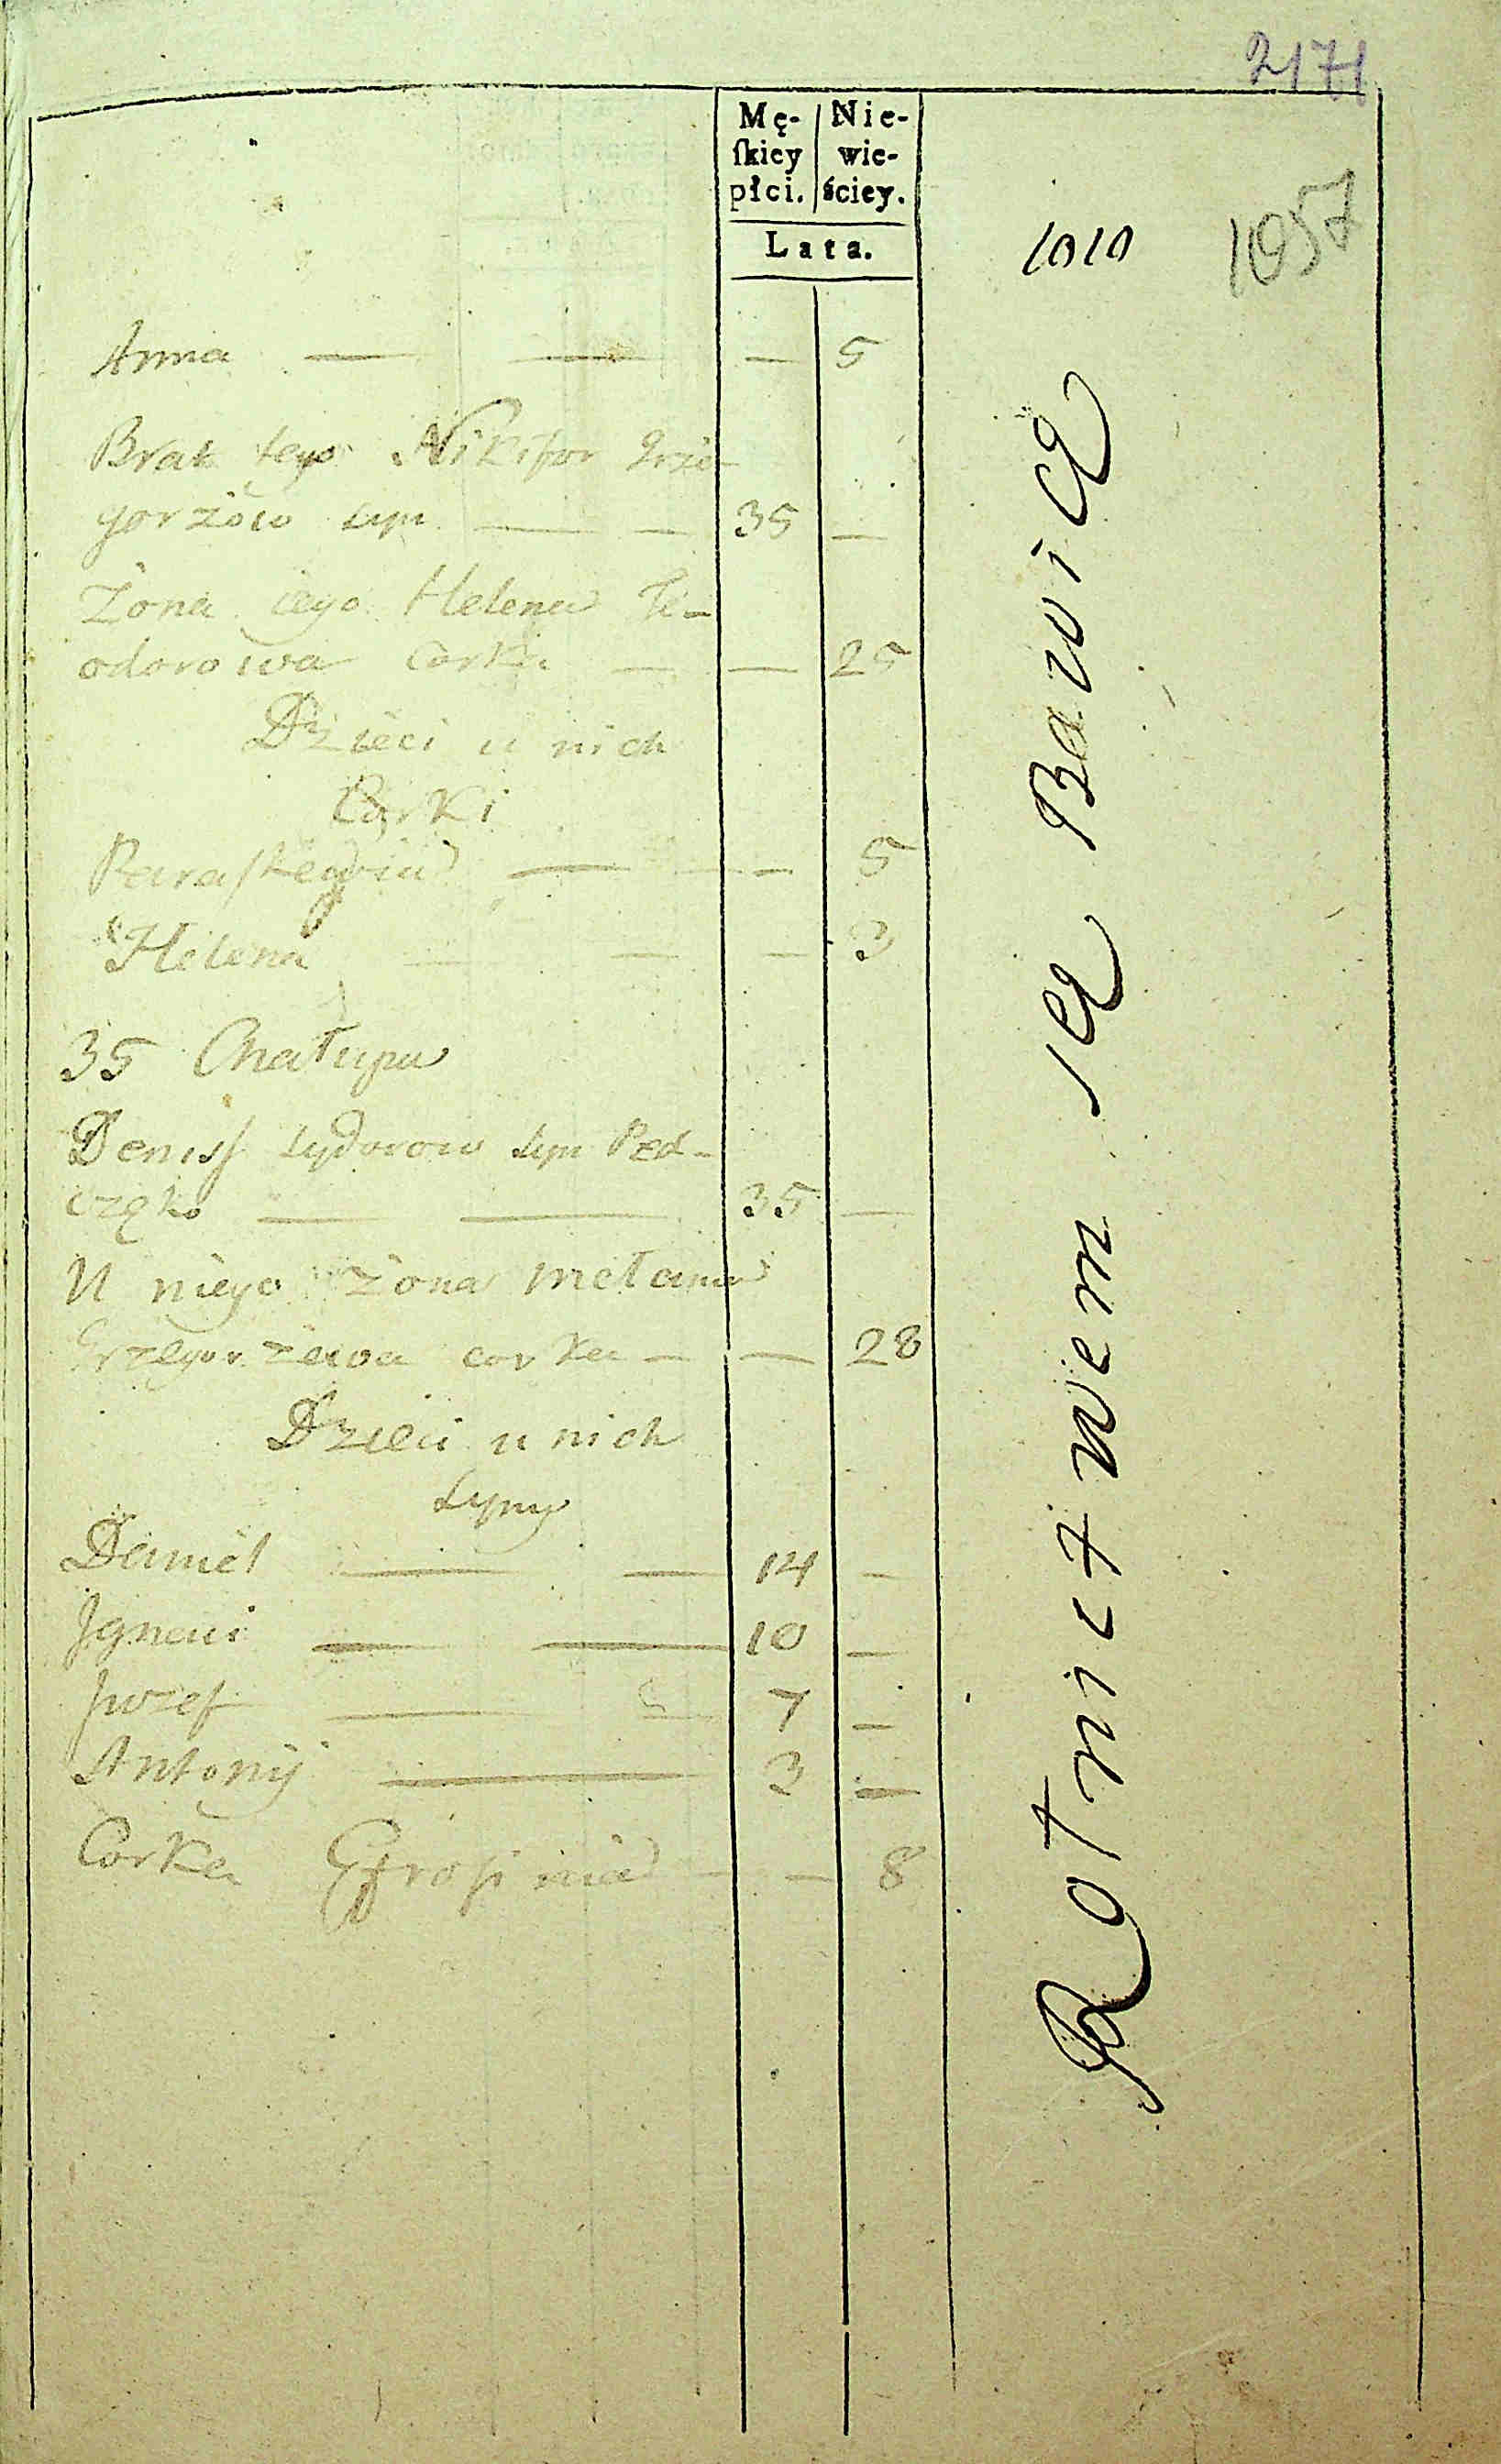 2171
Mę-
ſkiey
płci.
Nie-
wie-
ściey.
Lata.
1010
1057
Anna — — — 5
Brat tego Nikifor Grze-
gorżow syn — — 35 —
Żona iego Helena Te-
odorowa Corka — — 25
Dzieci u nich
Corki
Paraſkewia — — 5
Helena — — — 3
35 Chałupa
Deniſ Sydorow syn Ped-
częko — — 35 —
U niego żona Mełania
Grzegorzewa corka — — 28
Dzieci u nich
Syny
Daniel — — 14 —
Jgnaci — — 10 —
Jozef — — 7 —
Antonij — 3 —
Corka Efroſinia — — 8
Rolnictwem się Bawią